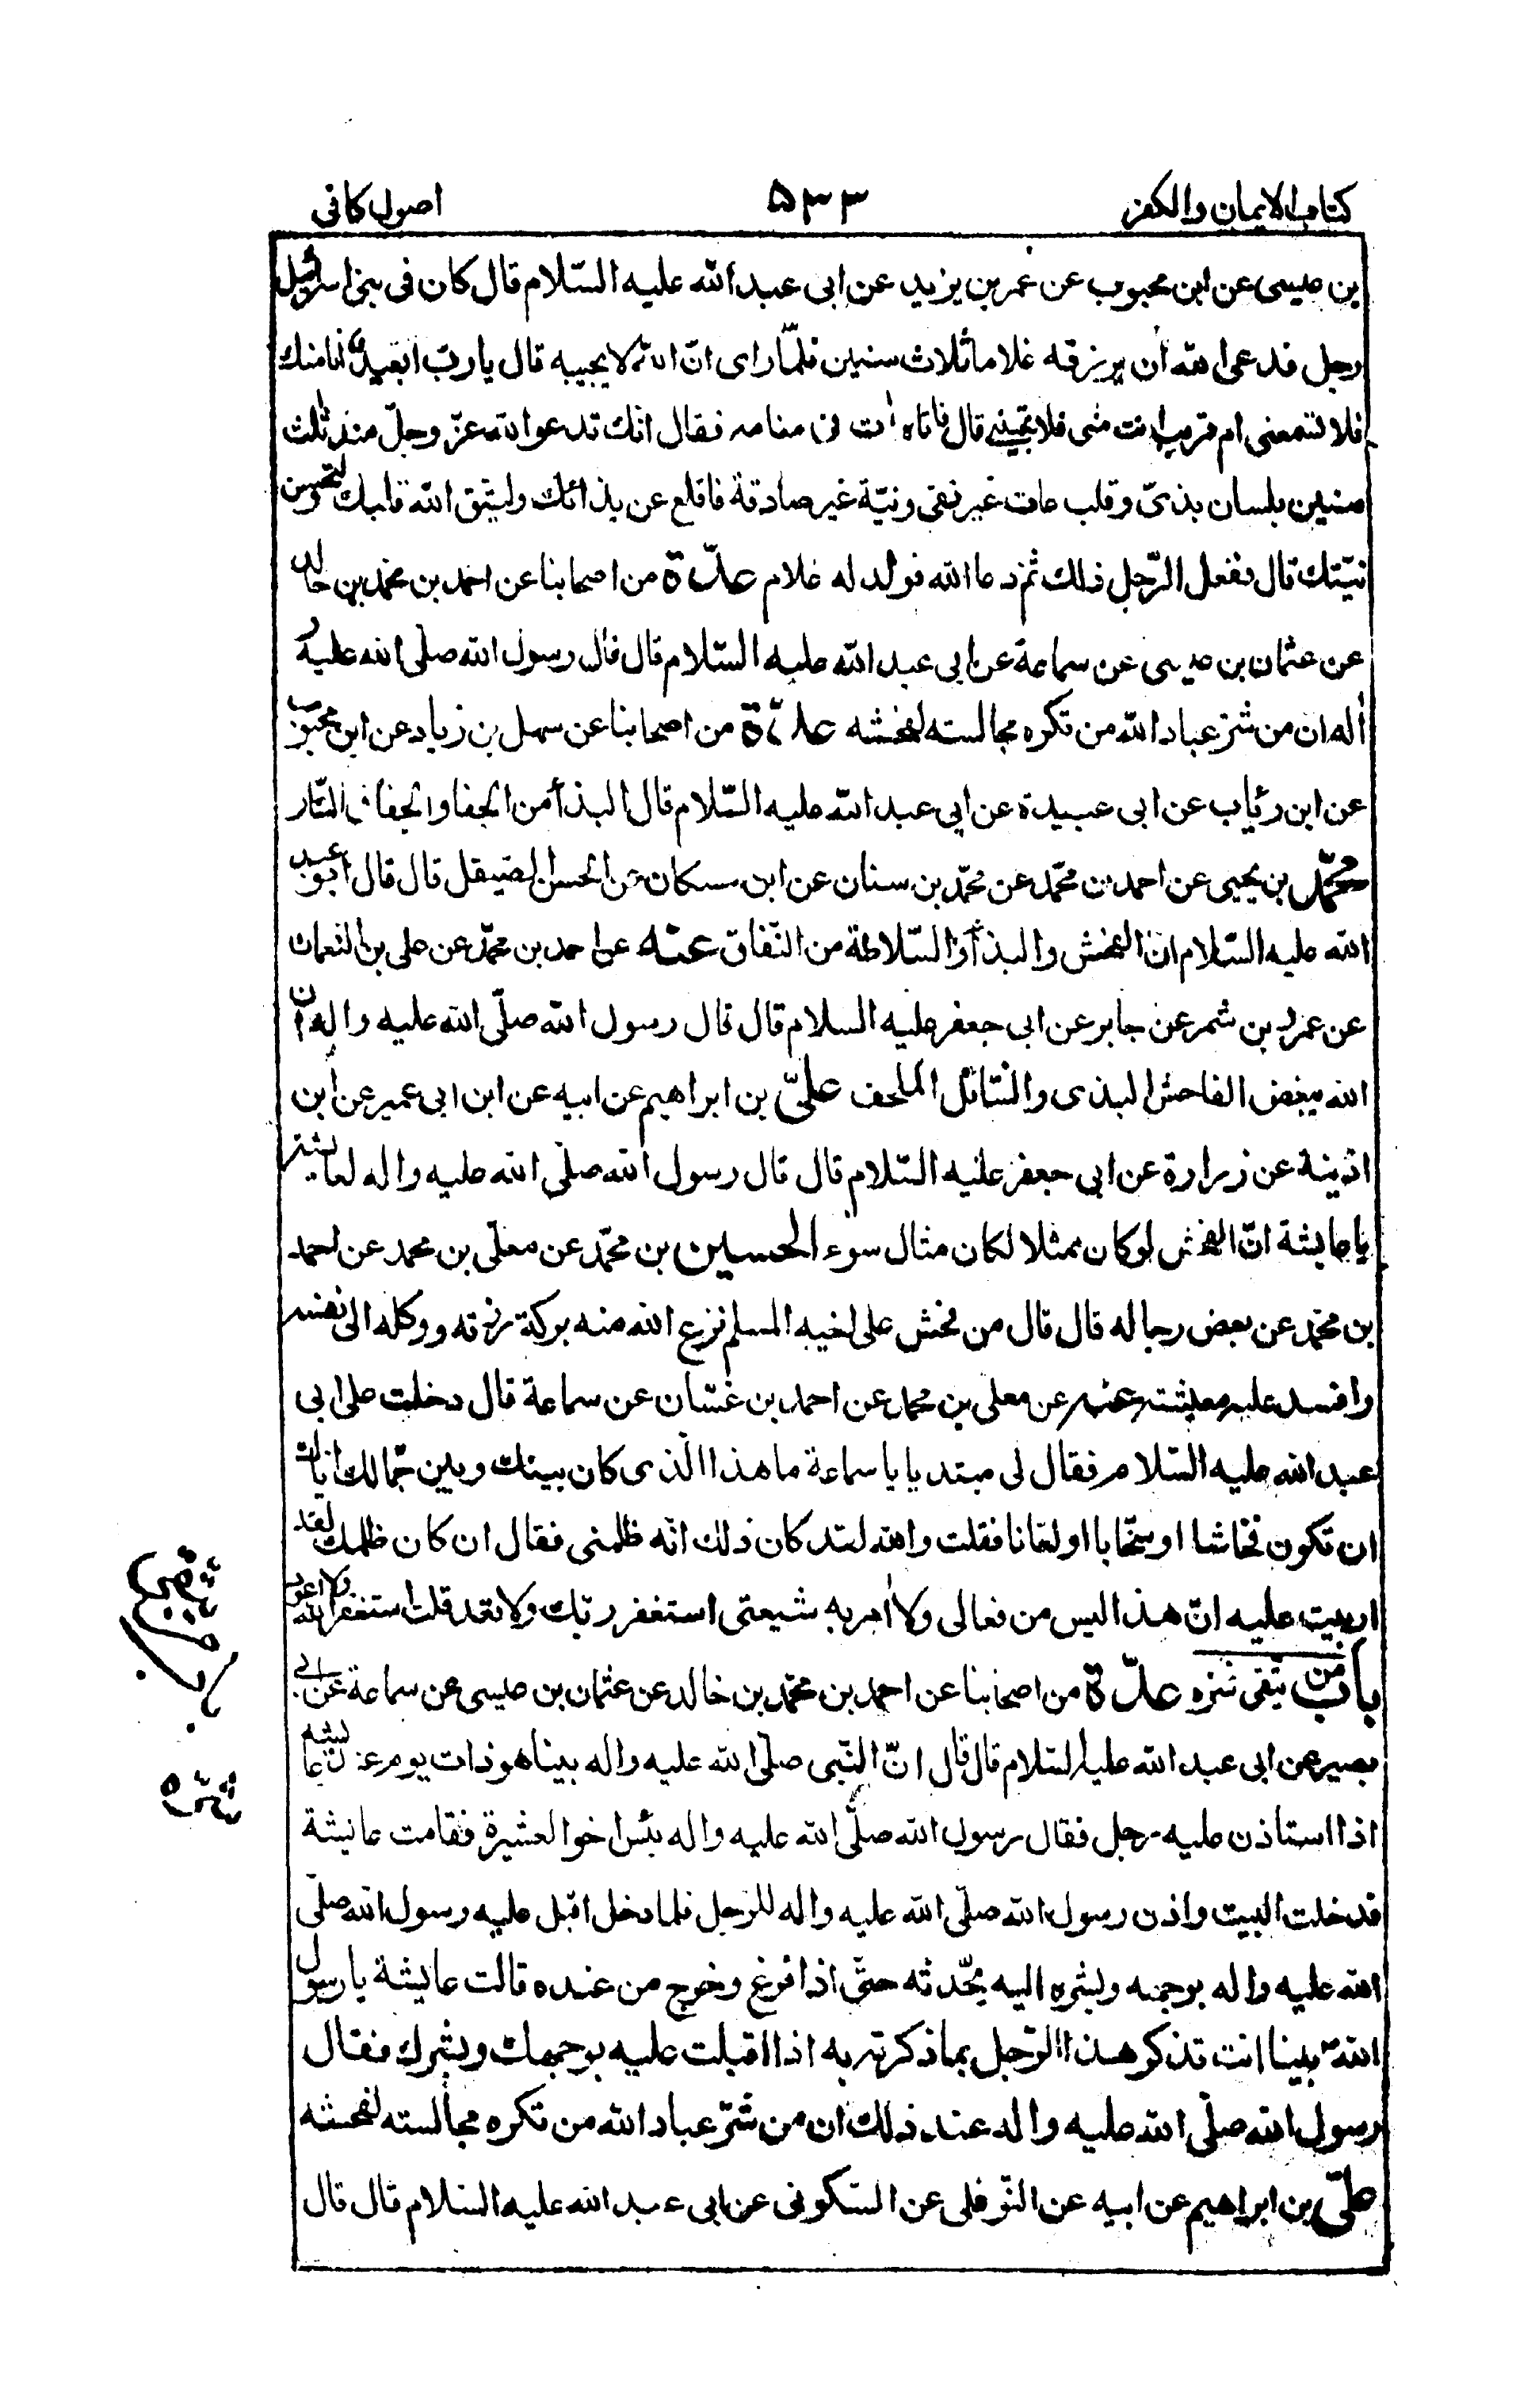 كتاب الايمان والكفر ۵۳۳ اصول كافى
بن عيسى عن ابن محبوب عن عمر بن يزيد عن ابى عبد الله عليه السّلام قال كان فى بنى اسرائيل
رجل فدعى الله أن يرزقه غلاما ثلاث سنين فلمّا راى انّ الله لا يجيبه قال يا ربّ ابعيد انا منك
فلا تسمعنى ام قريب انت منّى فلا تجيبنى قال فاتاه ات فى منامه فقال انّك تدعو الله عزّ وجلّ منذ ثلث
سنين بلسان بذىّ وقلب عات غير نقى ونيّة غير صادقة فاقلع عن بذائك وليتّق الله قلبك ولتحسن
نيّتك قال ففعل الرّجل ذلك ثمّ دعا الله فولد له غلام عدّة من اصحابنا عن احمد بن محمّد بن خالد
عن عثمان بن عيسى عن سماعة عن ابى عبد الله عليه السّلام قال قال رسول الله صلّى الله عليه و
أله ان من شرّ عباد الله من تكره مجالسته لفحشه عدّة من اصحابنا عن سهل بن زياد عن ابن محبوب
عن ابن رئاب عن ابى عبيدة عن ابى عبد الله عليه السّلام قال البذأ من الجفا والجفا فى النّار
محمّد بن يحيى عن احمد بن محمّد عن محمّد بن سنان عن ابن مسكان عن الحسن الصّيقل قال قال ابو عبد
الله عليه السّلام ان الفحش والبذأ والسّلاطة من النّفاق عنه عن احمد بن محمّد عن على بن النعمان
عن عمرو بن شمر عن جابر عن ابى جعفر عليه السلام قال قال رسول الله صلّى الله عليه واله ان
الله يبغض الفاحش البذى والسّائل الملحف علىّ بن ابراهيم عن ابيه عن ابن ابى عمير عن ابن
اذينة عن زرارة عن ابى جعفر عليه السّلام قال قال رسول الله صلّى الله عليه واله لعايشة
يا عايشة انّ الفحش لو كان ممثلا لكان مثال سوء الحسين بن محمّد عن معلّى بن محمد عن احمد
بن محمّد عن بعض رجاله قال قال من فحش على اخيه المسلم نزع الله منه بركة رزقه ووكله الى نفسه
وافسد عليه معيشته عنه عن معلى بن محمد عن احمد بن غسّان عن سماعة قال دخلت على ابى
عبد الله عليه السّلام فقال لى مبتديا يا سماعة ما هذا الّذى كان بينك وبين جمّالك اياك
ان تكون فحّاشا او سخّابا او لعّانا فقلت والله لقد كان ذلك انّه ظلمنى فقال ان كان ظلمك لقد
اربيت عليه انّ هذا ليس من فعالى ولا أمر به شيعتى استغفر ربّك ولا تعد قلت استغفر الله ولا اعود
باب من يتّقى شرّه عدّة من اصحابنا عن احمد بن محمّد بن خالد عن عثمان بن عيسى عن سماعة عن ابى
بصير عن ابى عبد الله عليه السّلام قال قال انّ النّبى صلّى الله عليه واله بينا هو ذات يوم عند عايشة
اذا استاذن عليه رجل فقال رسول الله صلّى الله عليه واله بئس اخو العشيرة فقامت عائيشة
فدخلت البيت واذن رسول الله صلّى الله عليه واله للرجل فلما دخل اقبل عليه رسول الله صلّى
الله عليه واله بوجهه وبشره اليه يحّدثه حتّى اذا فرغ وخرج من عنده قالت عايشة يا رسول
الله بينا انت تذكر هذا الرّجل بما ذكرته به اذا اقبلت عليه بوجهك وبشرك فقال
رسول الله صلّى الله عليه واله عند ذلك ان من شرّ عباد الله من تكره مجالسته لفحشه
علىّ بن ابراهيم عن ابيه عن النّوفلى عن السّكونى عن ابى عبد الله عليه السلام قال قال
باب من يتقى
شره